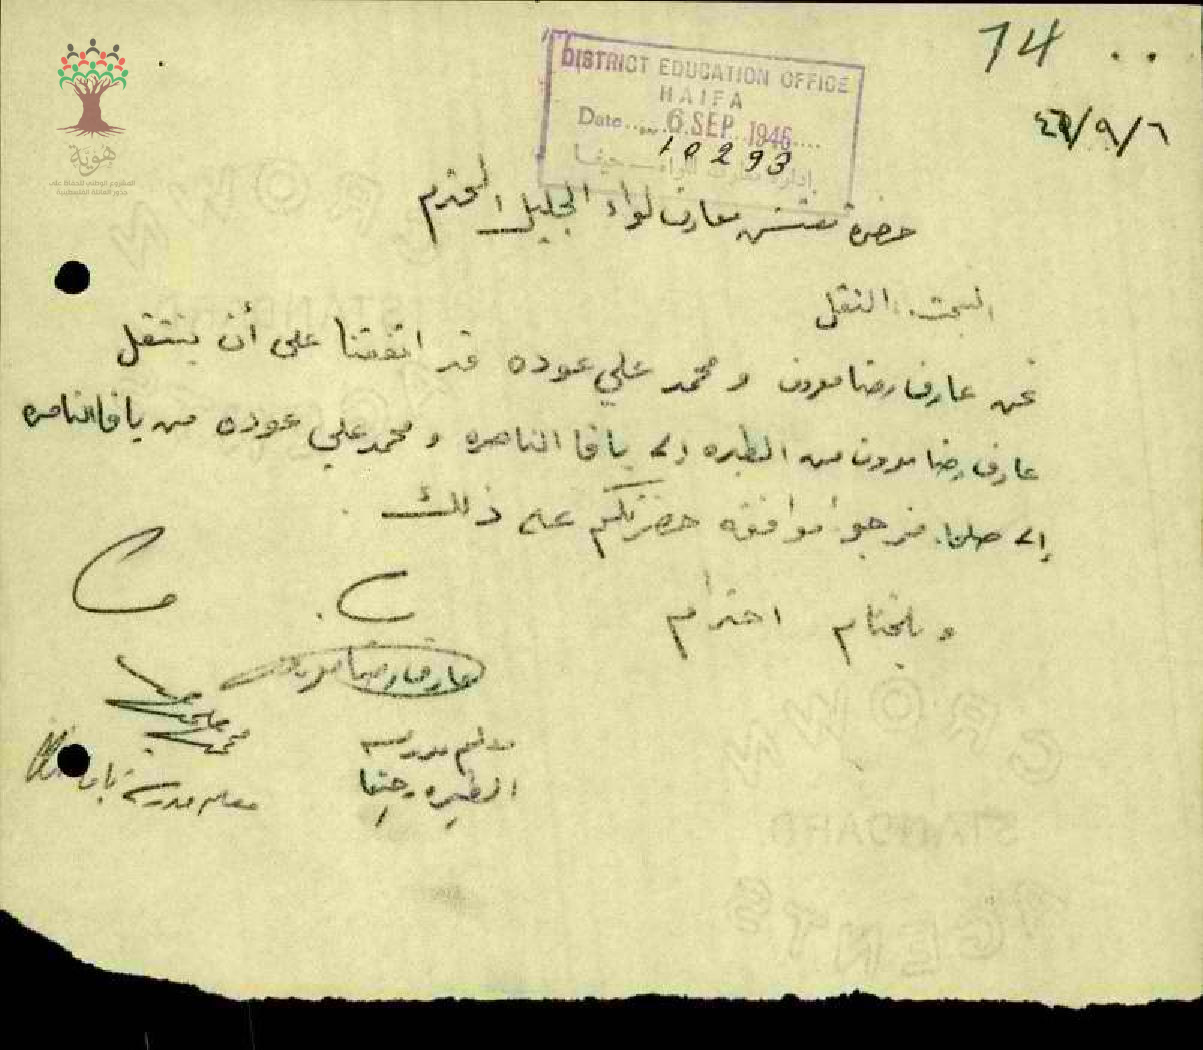 74
DISTRICT EDUCATION OFFICE
HAIFA
Date 6 SEP 1946
10293
إدارة معارف اللواء – حيفا
٤٦/٩/٦
هَوِيّة
المشروع الوطني للحفاظ على
جذور العائلة الفلسطينية
حضرة مفتش معارف لواء الجليل المحترم
البحث: النقل
نحن عارف رضا و محمد علي عوده قد اتفقنا على أن ينتقل
عارف رضا من الطيره الى يافا الناصره و محمد علي عوده من يافا الناصره
إلى فنرجو موافقة حضرتكم على ذلك
و بالختام احترام
عارف رضا
معلم مدرسة
الطيره حيفا
محمد علي
معلم مدرسة يافا
CROWN
STANDARD
AGENTS